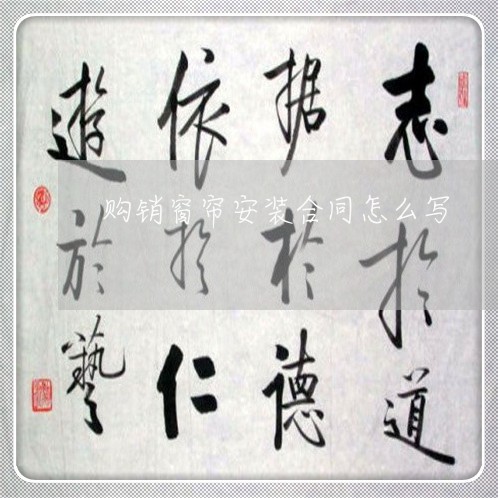 志於道
据於德
依於仁
遊於藝
购销窗帘安装合同怎么写